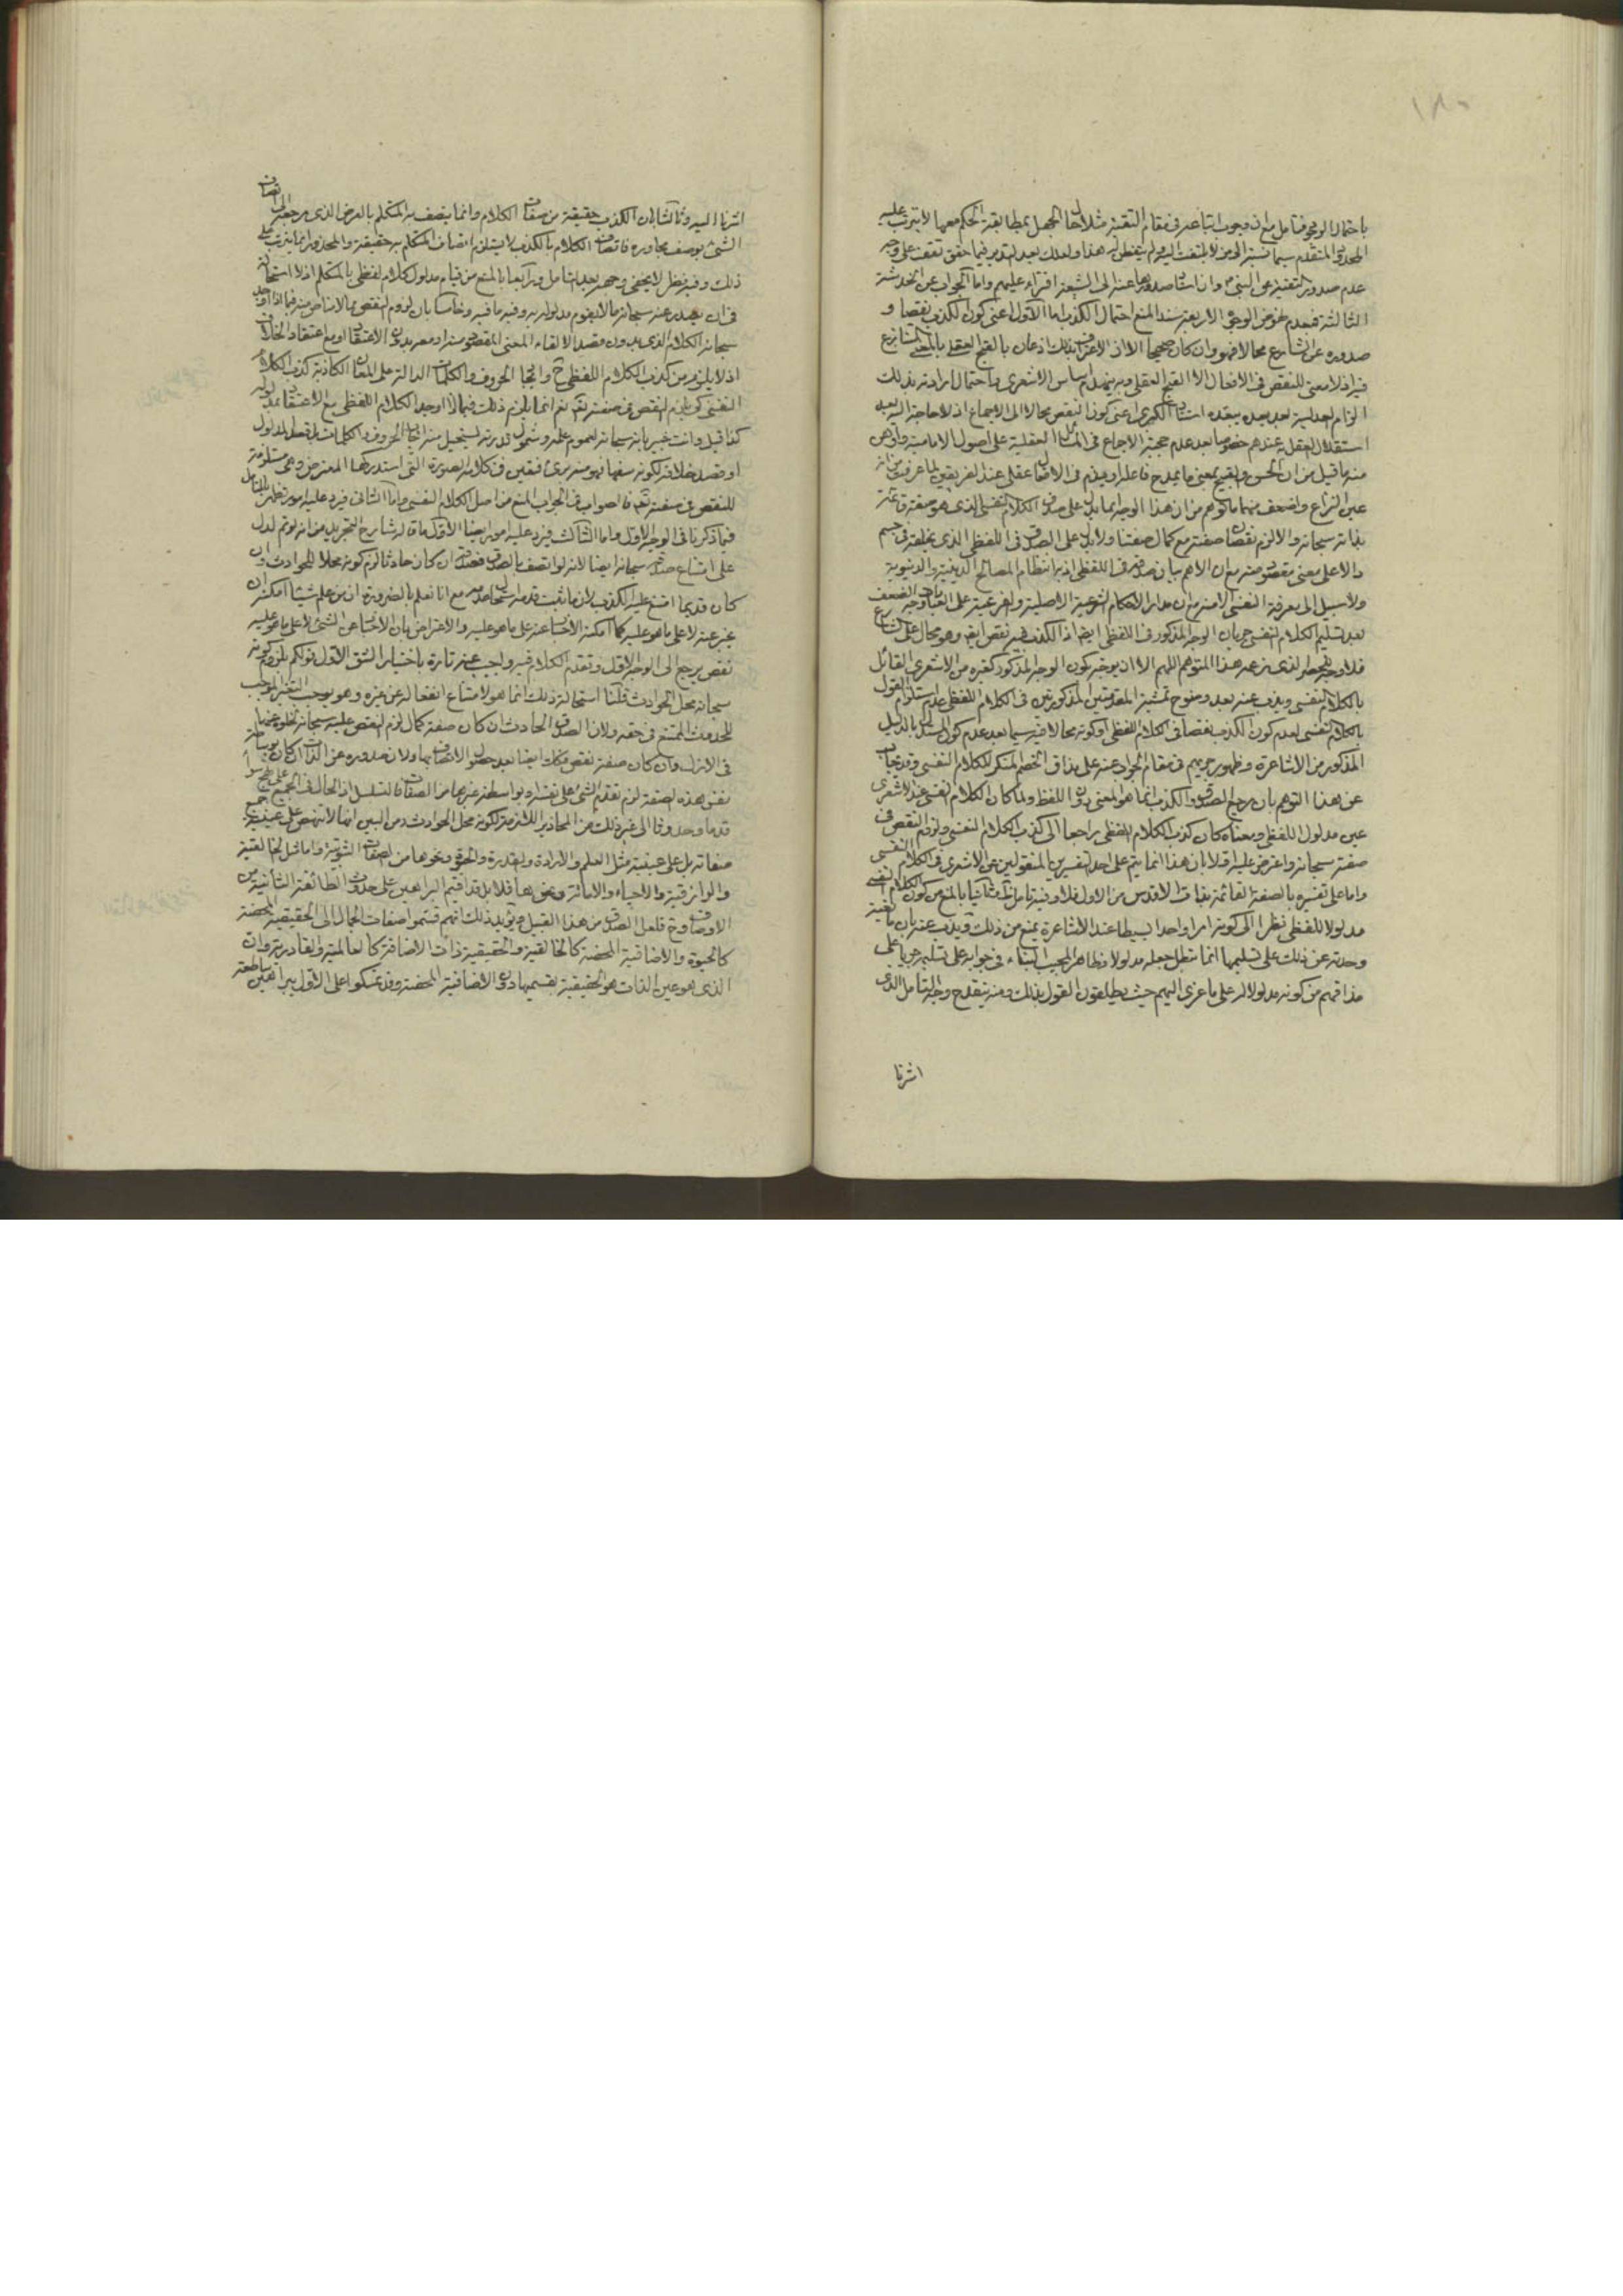 ١٨٠
باحتمال الوجوه فتامل مع ان وجوب اتباعه في مقام التقية مثلا حال الجهل بمطابقة الحكم معها لا يترتب عليه
المحذور المتقدم سيما نسبته الى من لا يلتفت اليه ولم يتفطن له هذا ولعلك بعد التدبر فيما حقق تقف على وجه
عدم صدور التقية عن النبي وان اسناد صدورها عنه الى الشيعة افتراء عليهم واما الجواب عن الخدشة
الثالثة فبعدم نهوض الوجوه الاربعة سند المنع احتمال الكذب اما الاول اعني كون الكذب نقصا و
صدوره عن الشارع محالا فهو وان كان صحيحا الا ان الاعتراف بذلك اذعان بالقبح العقلي بالمعنى المتنازع
فيه اذ لا معنى للنقص في الافعال الا القبح العقلي وبه ينهدم اساس الاشعري واحتمال ارادته بذلك
الزام العدلية بعيد بعده استناد الكبرى اعني كون النقص محالا الى الاجماع اذ لا حاجة اليه بعد
استقلال العقل به عندهم خصوصا بعد عدم حجية الاجماع في المسائل العقلية على اصول الامامية واوهن
منه ما قيل من ان الحسن والقبح بمعنى ما يمدح فاعله او يذم في الافعال عقلي عند الفريقين لما عرفت من انه
عين النزاع واضعف منهما ما توهم من ان هذا الوجه انما يدل على صدق الكلام النفسي الذي هو صفة قائمة
بذاته سبحانه والا لزم نقصان صفته مع كمال صفتنا ولا يدل على الصدق في اللفظي الذي يخلقه في جسم
دالا على معنى مقصود منه مع ان الاهم بيان صدقه في اللفظي اذ به انتظام المصالح الدينية والدنيوية
ولا سبيل الى معرفة النفسي الا منه مدار الاحكام الشرعية الاصلية والفرعية على العباد وجه الضعف
بعد تسليم الكلام النفسي جريان الوجه المذكور في اللفظي ايضا اذ الكذب فيه نقص ايضا وهو محال على الشارع
فلا وجه للحصر الذي زعمه هذا المتوهم اللهم الا ان يوجه بكون الوجه المذكور كغيره من الاشعري القائل
بالكلام النفسي ويذب عنه بعد وضوح تمشية المقدمتين المذكورتين في الكلام اللفظي عدم استلزام القول
بالكلام النفسي لعدم كون الكذب نقصا في الكلام اللفظي او كونه محالا فيه سيما بعد عدم كون المستدل بالدليل
المذكور من الاشاعرة وظهور جريهم في مقام الجواب عنه على مذاق الخصم المنكر للكلام النفسي وقد يجاب
عن هذا التوهم بان مرجع الصدق والكذب انما هو المعنى دون اللفظ ولما كان الكلام النفسي عند الاشعري
عين مدلول اللفظي ومعناه كان كذب الكلام اللفظي راجعا الى كذب الكلام النفسي ولزم النقص في
صفته سبحانه واعترض عليه اولا بان هذا انما يتم على احد تفسيرين المنقولين عن الاشعري في الكلام النفسي
واما على تفسيره بالصفة القائمة بذات الاقدس من الاول فلا وفيه تامل وثانيا بالمنع من كون الكلام النفسي
مدلولا للفظي نظرا الى كونه امرا واحدا بسيطا عند الاشاعرة يمنع من ذلك ويذب عنه بان مانعية
وحدته عن ذلك على تسليمها انما تبطل جعله مدلولا وظاهر المجيب البناء في جوابه على تسليمه جريا على
مذاقهم من كونه مدلولا له على ما عزى اليهم حيث يطلقون القول بذلك ومنه ينقدح وجه التامل الذي
اشرنا
اشرنا اليه وثالثا بان الكذب حقيقة من صفات الكلام وانما يتصف به المتكلم بالعرض الذي مرجعه الى اتصاف
الشيء بوصف مجاوره فاتصاف الكلام بالكذب لا يستلزم اتصاف المتكلم به حقيقة والمحذور انما يترتب على
ذلك وفيه نظر لا يخفى وجهه بعد التامل ورابعا بالمنع من قيام مدلول كلام لفظي بالمتكلم اذ لا استحالة
في ان يصدر عنه سبحانه ما لا يقوم مدلوله به وفيه ما فيه وخامسا بان لزوم النقص مما لا مناص منه فيما اذا اوجد
سبحانه الكلام الذي بدون قصد الالقاء المعنى المقصود منه او معه بدون الاعتقاد او مع اعتقاد الخلاف
اذ لا يلزم من كذب الكلام اللفظي ح وايجاد الحروف والكلمات الدالة على المعاني الكاذبة كذب الكلام
النفسي كي يلزم النقص في صفته تعالى نعم انما يلزم ذلك فيما اذا اوجد الكلام اللفظي مع الاعتقاد بمدلوله
كذا قيل وانت خبير بانه سبحانه لعموم علمه وشمول قدرته يستحيل منه ايجاد الحروف والكلمات بلا قصد المدلول
او قصد خلافه لكونه سفها فهو منه برئ فيقين في كلامه الصورة التي استدركها المعترض وهي مستلزمة
للنقص في صفته تعالى فالصواب في الجواب المنع من اصل الكلام النفسي واما الثاني فيرد عليه امور تظهر بالتامل
فيما ذكرنا في الوجه الاول واما الثالث فيرد عليه امور ايضا الاول ما قاله شارح التجريد من انه لو تم لدل
على امتناع صدقه سبحانه ايضا لانه لو اتصف بالصدق فصدقه ان كان حادثا لزم كونه محلا للحوادث وان
كان قديما امتنع عليه الكذب لان ما ثبت قدمه استحال عدمه مع انا نعلم بالضرورة ان من علم شيئا امكنه ان
يخبر عنه لا على ما هو عليه كما امكنه الاخبار عنه على ما هو عليه والاعتراض بان الاخبار عن الشيء لا على ما هو عليه
نقص يرجع الى الوجه الاول وتقدم الكلام فيه واجيب عنه تارة باختيار الشق الاول قولكم يلزم كونه
سبحانه محل الحوادث قلنا استحالة ذلك انما هو لامتناع انفعاله عن غيره وهو يوجب التغير الموجب
للحدوث الممتنع في حقه ولان الصدق الحادث ان كان صفة كمال لزم النقص عليه سبحانه لخلوه عنها
في الازل وان كان صفة نقص فكذلك ايضا بعد حصول الاتصاف بها ولان صدوره عن الذات ان كان بوساطة
نفس هذه الصفة لزم تقدم الشيء على نفسه او بواسطة غيرها من الصفات فالتسلسل اذ الحال في الجميع على نهج سواء
قدما وحدوثا الى غير ذلك من المحاذير اللازمة لكونه محل الحوادث ومن البين انها لا تنهض على عينية جميع
صفاته بل على عينية مثل العلم والارادة والقدرة والحيوة ونحوها من الصفات الثبوتية واما مثل الخالقية
والرازقية والاحياء والاماتة ونحوها فلا بل قد اقيم البراهين على حدوث الطائفة الثانية من
الاوصاف وح فلعل الصدق من هذا القبيل ويؤيد ذلك انهم قسموا صفات الجمال الى الحقيقية المحضة
كالحيوة والاضافية المحضة كالخالقية والحقيقية ذات الاضافة كالعالمية والقادرية وان
الذي هو عين الذات هو الحقيقية بقسميها دون الاضافية المحضة وقد تمسكوا على الاول ببراهين ساطعة